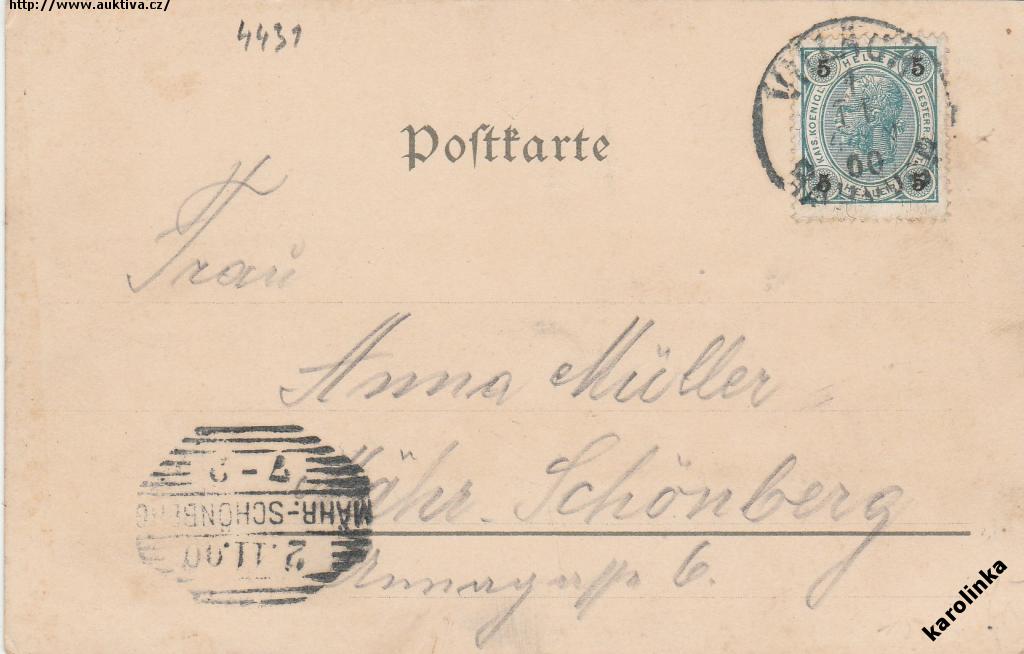 http://www.auktiva.cz/
4431
Postkarte
5 HELLER 5
KAIS. KOENIGL. OESTERR.
5 5
00
Frau
Anna Müller
Mähr. Schönberg
Annagasse 6.
2.11.00
MÄHR.-SCHÖNBERG
7-
karolinka